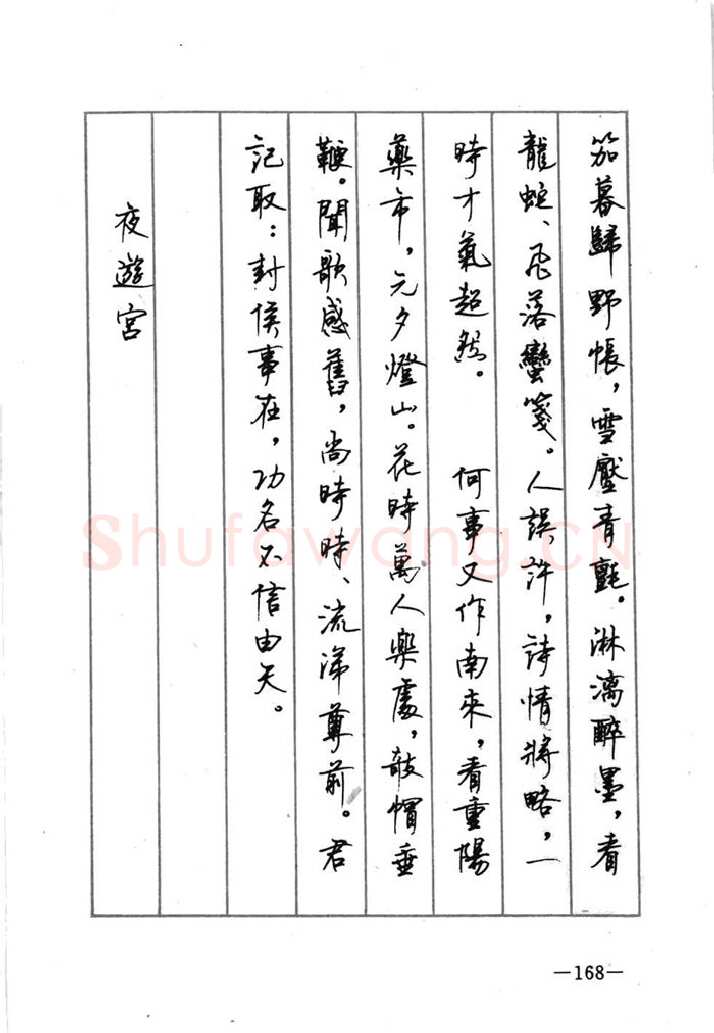 笳暮歸野帳，雪壓青氈。淋漓醉墨，看
龍蛇、飛落蠻箋。人誤許，詩情將略，一
時才氣超然。　何事又作南來，看重陽
藥市，元夕燈山。花時萬人樂處，敧帽垂
鞭。聞歌感舊，尚時時、流涕尊前。君
記取：封侯事在，功名不信由天。
夜遊宮
—168—
Shufawang.CN